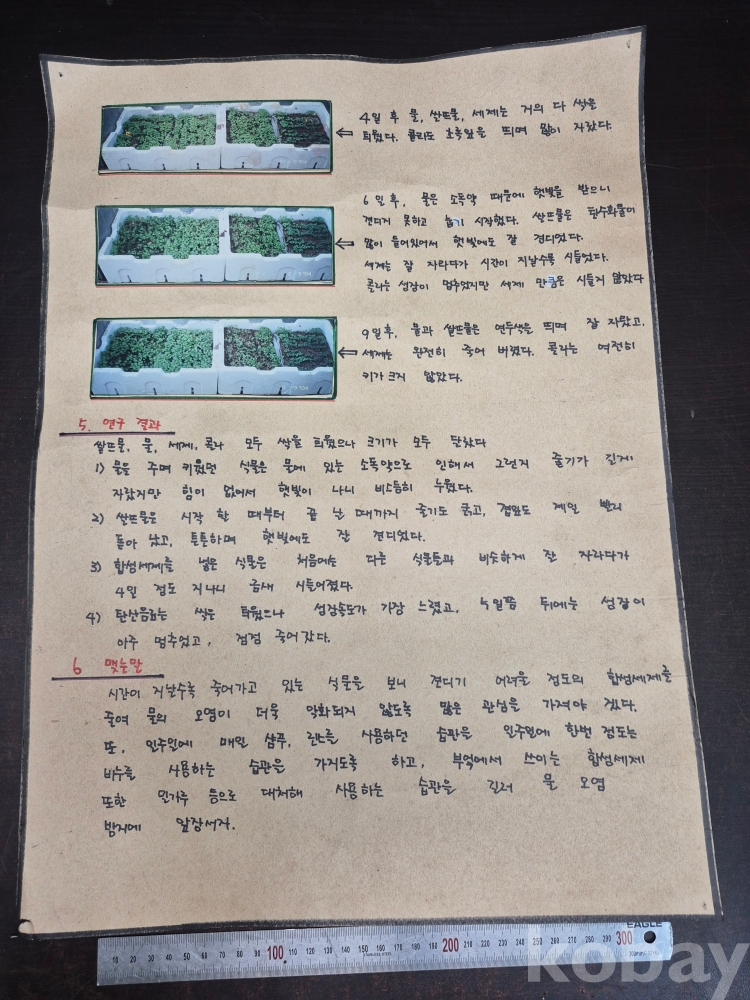 4일 후 물, 쌀뜨물, 세제는 거의 다 싹을
틔웠다. 콜라도 초록잎을 띄며 많이 자랐다.
6일후, 물은 소독약 때문에 햇빛을 받으니
견디지 못하고 눕기 시작했다. 쌀뜨물은 탄수화물이
많이 들어있어서 햇빛에도 잘 견디었다.
세제는 잘 자라다가 시간이 지날수록 시들었다.
콜라는 성장이 멈추었지만 세제 만큼은 시들지 않았다
9일후, 물과 쌀뜨물은 연두색을 띄며 잘 자랐고,
세제는 완전히 죽어 버렸다. 콜라는 여전히
키가 크지 않았다.
5. 연구 결과
쌀뜨물, 물, 세제, 콜라 모두 싹을 틔웠으나 크기가 모두 달랐다
1) 물을 주며 키웠던 식물은 물에 있는 소독약으로 인해서 그런지 줄기가 길게
자랐지만 힘이 없어서 햇빛이 나니 비스듬히 누웠다.
2) 쌀뜨물은 시작 할 때부터 끝 날 때까지 줄기도 굵고, 겹잎도 제일 빨리
돋아 났고, 튼튼하며 햇빛에도 잘 견디었다.
3) 합성세제를 넣은 식물은 처음에는 다른 식물들과 비슷하게 잘 자라다가
4일 정도 지나니 금새 시들어졌다.
4) 탄산음료는 싹은 틔웠으나 성장속도가 가장 느렸고, 4일쯤 뒤에는 성장이
아주 멈추었고, 점점 죽어 갔다.
6 맺는말
시간이 지날수록 죽어가고 있는 식물을 보니 견디기 어려울 정도의 합성세제를
줄여 물의 오염이 더욱 악화되지 않도록 많은 관심을 가져야 겠다.
또, 일주일에 매일 샴푸, 린스를 사용하던 습관을 일주일에 한번 정도는
비누를 사용하는 습관을 가지도록 하고, 부엌에서 쓰이는 합성세제
또한 밀가루 등으로 대처해 사용하는 습관을 길러 물 오염
방지에 앞장서자.
EAGLE
10 20 30 40 50 60 70 80 90 100 110 120 130 140 150 160 170 180 190 200 210 220 230 240 250 260 270 280 290 300
STAINLESS STEEL
kobay